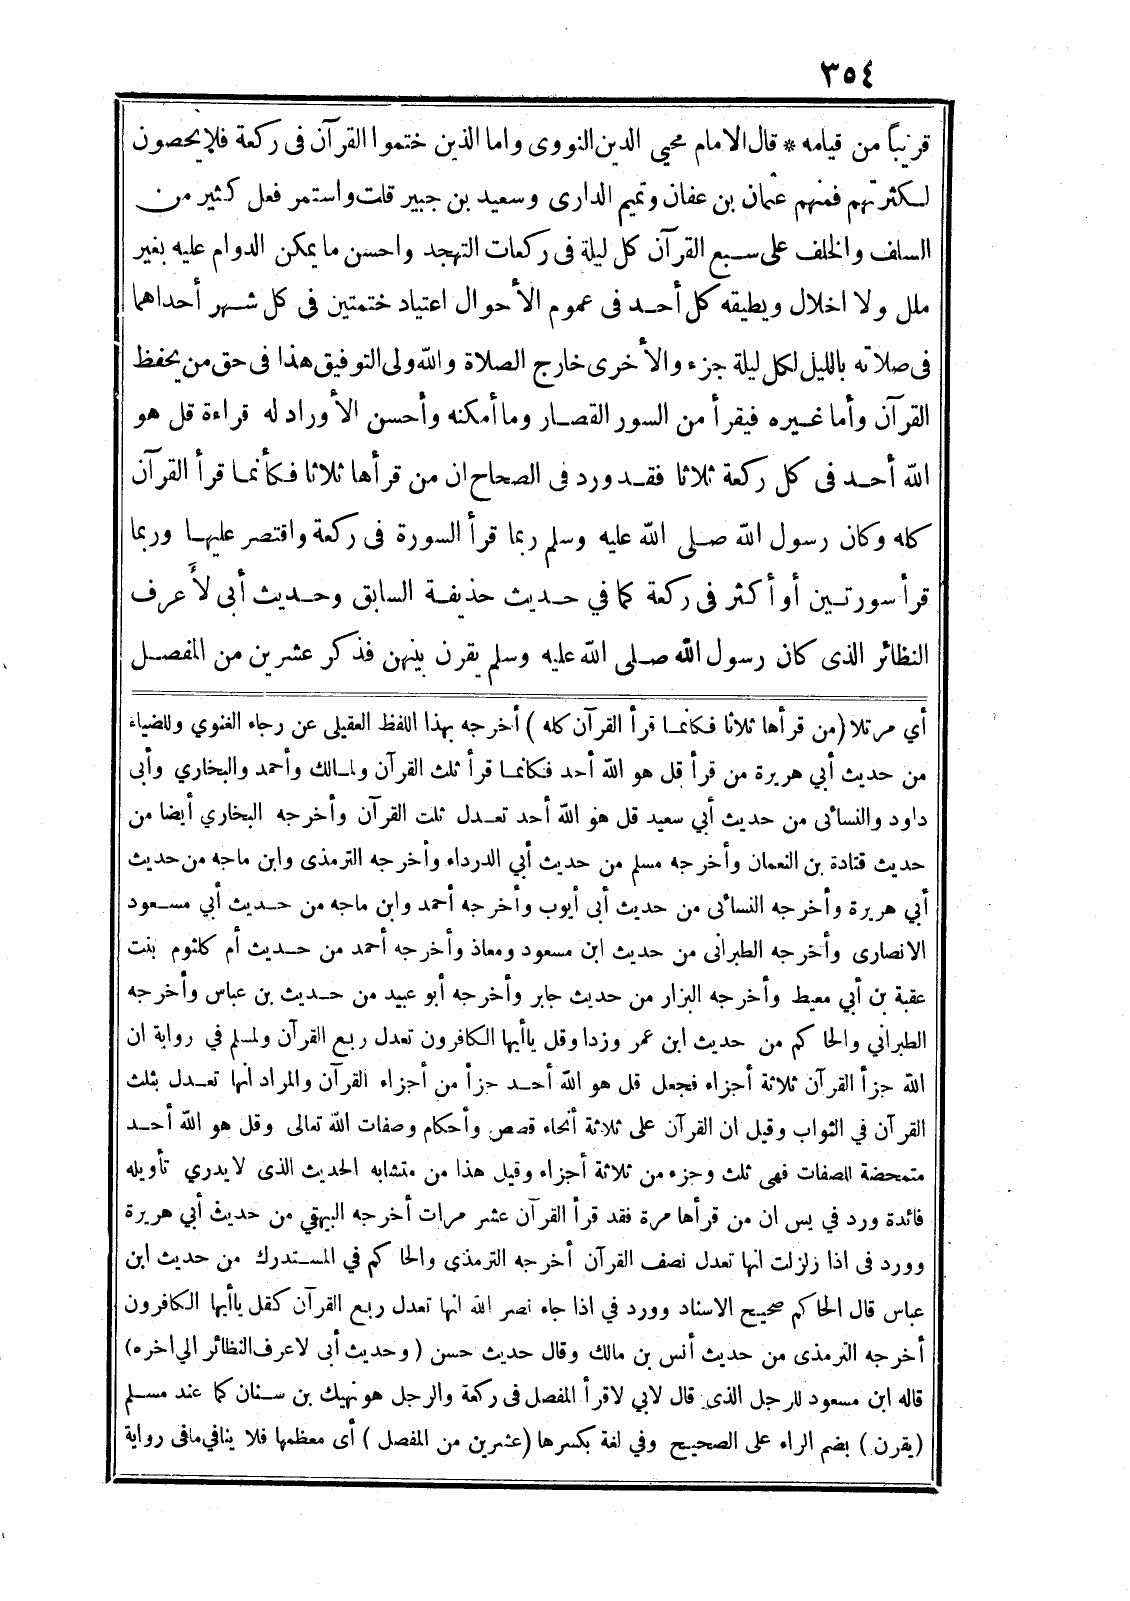 ٣٥٤
قريباً من قيامه * قال الامام محيي الدين النووى واما الذين ختموا القرآن فى ركعة فلا يحصون
لكثرتهم فمنهم عثمان بن عفان وتميم الدارى وسعيد بن جبير قلت واستمر فعل كثير من
السلف والخلف على سبع القرآن كل ليلة فى ركعات التهجد واحسن ما يمكن الدوام عليه بغير
ملل ولا اخلال ويطيقه كل أحد فى عموم الأحوال اعتياد ختمتين فى كل شهر أحداهما
فى صلاته بالليل لكل ليلة جزء والأخرى خارج الصلاة والله ولى التوفيق هذا فى حق من يحفظ
القرآن وأما غيره فيقرأ من السور القصار وما أمكنه وأحسن الأوراد له قراءة قل هو
الله أحد فى كل ركعة ثلاثا فقد ورد فى الصحاح ان من قرأها ثلاثا فكأنما قرأ القرآن
كله وكان رسول الله صلى الله عليه وسلم ربما قرأ السورة فى ركعة واقتصر عليها وربما
قرأ سورتين أو أكثر فى ركعة كما في حديث حذيفة السابق وحديث أبى لأعرف
النظائر الذى كان رسول الله صلى الله عليه وسلم يقرن بينهن فذكر عشرين من المفصل
أي مرتلا (من قرأها ثلاثا فكانما قرأ القرآن كله ) أخرجه بهذا اللفظ العقيلى عن رجاء الغنوي وللضياء
من حديث أبي هريرة من قرأ قل هو الله أحد فكانما قرأ ثلث القرآن ولمالك وأحمد والبخاري وأبى
داود والنسائى من حديث أبي سعيد قل هو الله أحد تعدل ثلث القرآن وأخرجه البخاري أيضا من
حديث قتادة بن النعمان وأخرجه مسلم من حديث أبي الدرداء وأخرجه الترمذى وابن ماجه من حديث
أبي هريرة وأخرجه النسائى من حديث أبى أيوب وأخرجه أحمد وابن ماجه من حديث أبي مسعود
الانصارى وأخرجه الطبرانى من حديث ابن مسعود ومعاذ وأخرجه أحمد من حديث أم كلثوم بنت
عقبة بن أبي معيط وأخرجه البزار من حديث جابر وأخرجه أبو عبيد من حديث بن عباس وأخرجه
الطبراني والحاكم من حديث ابن عمر وزدا وقل ياأيها الكافرون تعدل ربع القرآن ولمسلم في رواية ان
الله جزأ القرآن ثلاثة أجزاء فجعل قل هو الله أحد جزأ من أجزاء القرآن والمراد انها تعدل بثلث
القرآن في الثواب وقيل ان القرآن على ثلاثة أنحاء قصص وأحكام وصفات الله تعالى وقل هو الله أحد
متمحضة للصفات فهى ثلث وجزء من ثلاثة أجزاء وقيل هذا من متشابه الحديث الذى لا يدري تأويله
فائدة ورد في يس ان من قرأها مرة فقد قرأ القرآن عشر مرات أخرجه البيهقي من حديث أبي هريرة
وورد فى اذا زلزلت انها تعدل نصف القرآن أخرجه الترمذى والحاكم في المستدرك من حديث ابن
عباس قال الحاكم صحيح الاسناد وورد في اذا جاء نصر الله انها تعدل ربع القرآن كقل ياأيها الكافرون
أخرجه الترمذى من حديث أنس بن مالك وقال حديث حسن ( وحديث أبى لاعرف النظائر الي اخره)
قاله ابن مسعود للرجل الذى قال لابي لاقرأ المفصل فى ركعة والرجل هو نهيك بن سنان كما عند مسلم
(يقرن ) بضم الراء على الصحيح وفي لغة بكسرها (عشرين من المفصل ) أى معظمها فلا ينافي مافى رواية